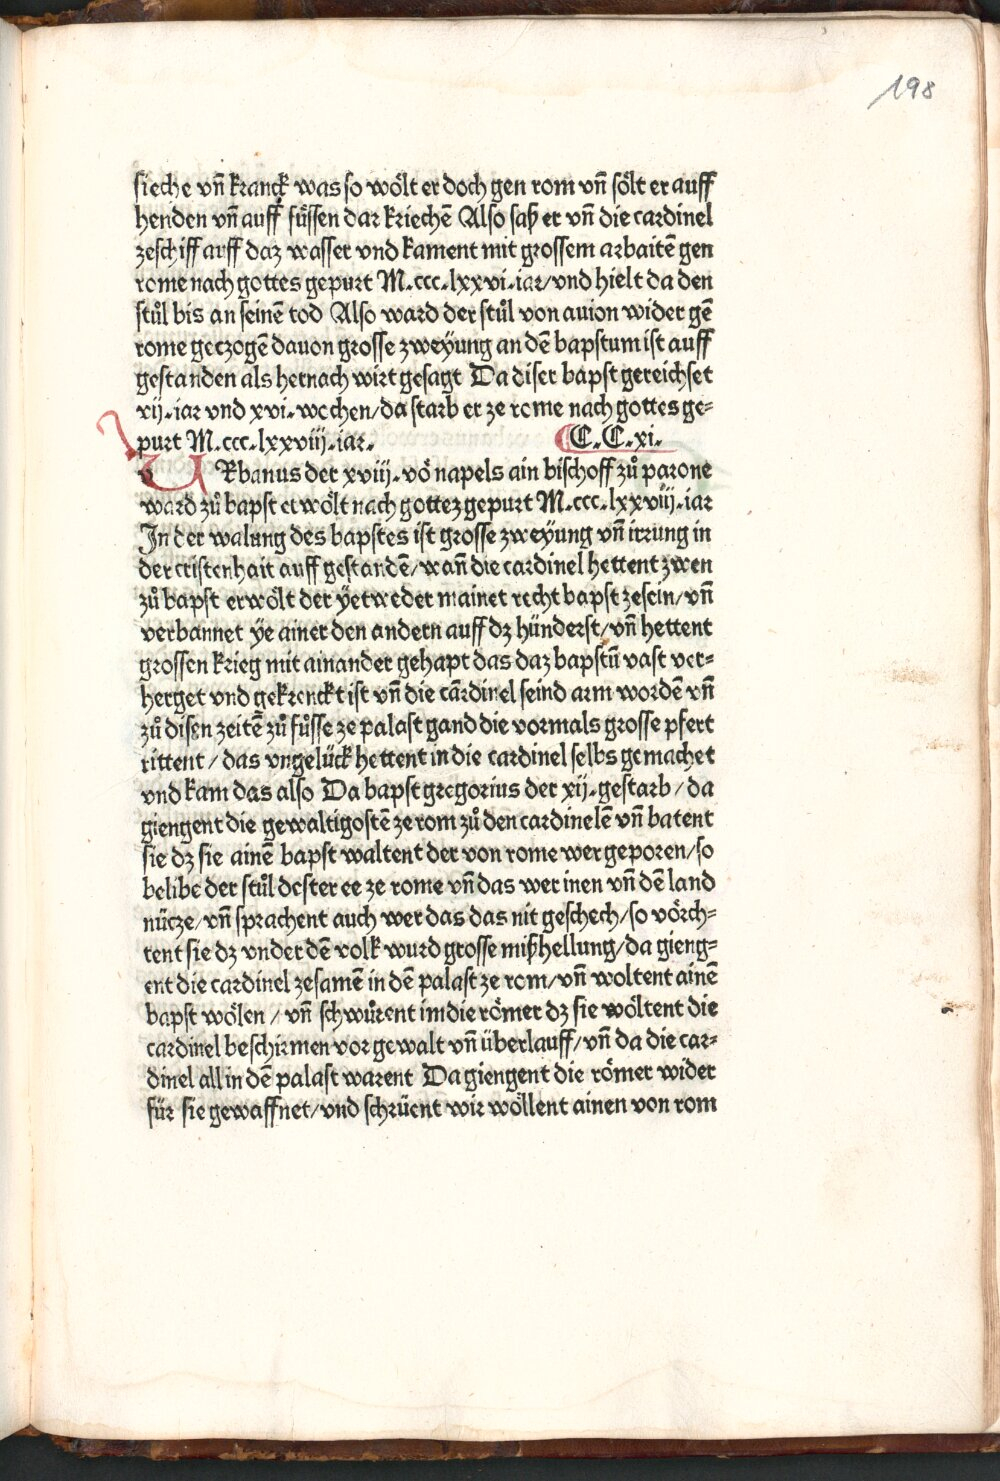 198
sieche vn̄ kranck was so wölt er doch gen rom vn̄ sölt er auff
henden vn̄ auff füssen dar kriechē Also saß er vn̄ die cardinel
zeschiff auff daz wasser vnd kament mit grossem arbaitē gen
rome nach gottes gepurt M.ccc.lxxvi.iar/vnd hielt da den
stůl bis an seinē tod Also ward der stůl von auion wider gē
rome geczogē dauon grosse zweÿung an dē bapstum ist auff
gestanden als hernach wirt gesagt Da diser bapst gereichset
vij.iar vnd xvi.wochen/da starb er ze rome nach gottes ge⸗
purt M.ccc.lxxviii.iar. C.C.xi.
URbanus der xviij.vō napels ain bischoff zů parone
ward zů bapst erwölt nach gottez gepurt M.ccc.lxxviij.iar
In der walung des bapstes ist grosse zweÿung vn̄ irrung in
der cristenhait auff gestandē/wan̄ die cardinel hettent zwen
zů bapst erwölt der ÿetweder mainet recht bapst zesein/vn̄
verbannet ÿe ainer den andern auff dz hünderst/vn̄ hettent
grossen krieg mit ainander gehapt das daz bapstū vast ver⸗
herget vnd gekrenckt ist vn̄ die cardinel seind arm wordē vn̄
zů disen zeitē zů fůsse ze palast gand die vormals grosse pfert
rittent/das vngelück hettent in die cardinel selbs gemachet
vnd kam das also Da bapst gregorius der xij.gestarb/da
giengent die gewaltigostē ze rom zů den cardinelē vn̄ batent
sie dz sie ainē bapst waltent der von rome wer geporen/so
belibe der stůl dester ee ze rome vn̄ das wer inen vn̄ dē land
nücze/vn̄ sprachent auch wer das das nit geschech/so vörch⸗
tent sie dz vnder dē volk wurd grosse mißhellung/da gieng⸗
ent die cardinel zesamē in dē palast ze rom/vn̄ woltent ainē
bapst wölen/vn̄ schwůrent im die römer dz sie wöltent die
cardinel beschirmen vor gewalt vn̄ überlauff/vn̄ da die car⸗
dinel all in dē palast warent Da giengent die römer wider
für sie gewaffnet/vnd schrüent wir wöllent ainen von rom